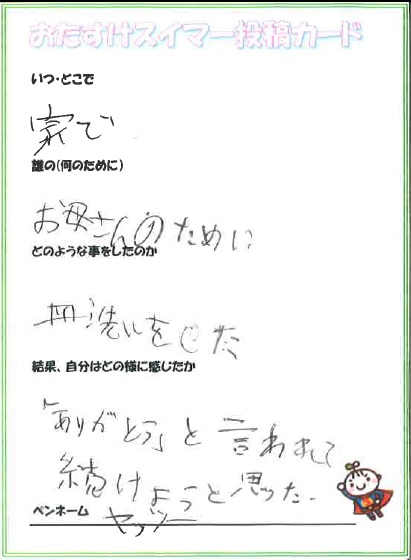 おたすけスイマー投稿カード
いつ・どこで
家で
誰の(何のために)
お母さんのために
どのような事をしたのか
皿洗いをした
結果、自分はどの様に感じたか
「ありがとう」と言われて
続けようと思った.
ペンネーム ヤッツー